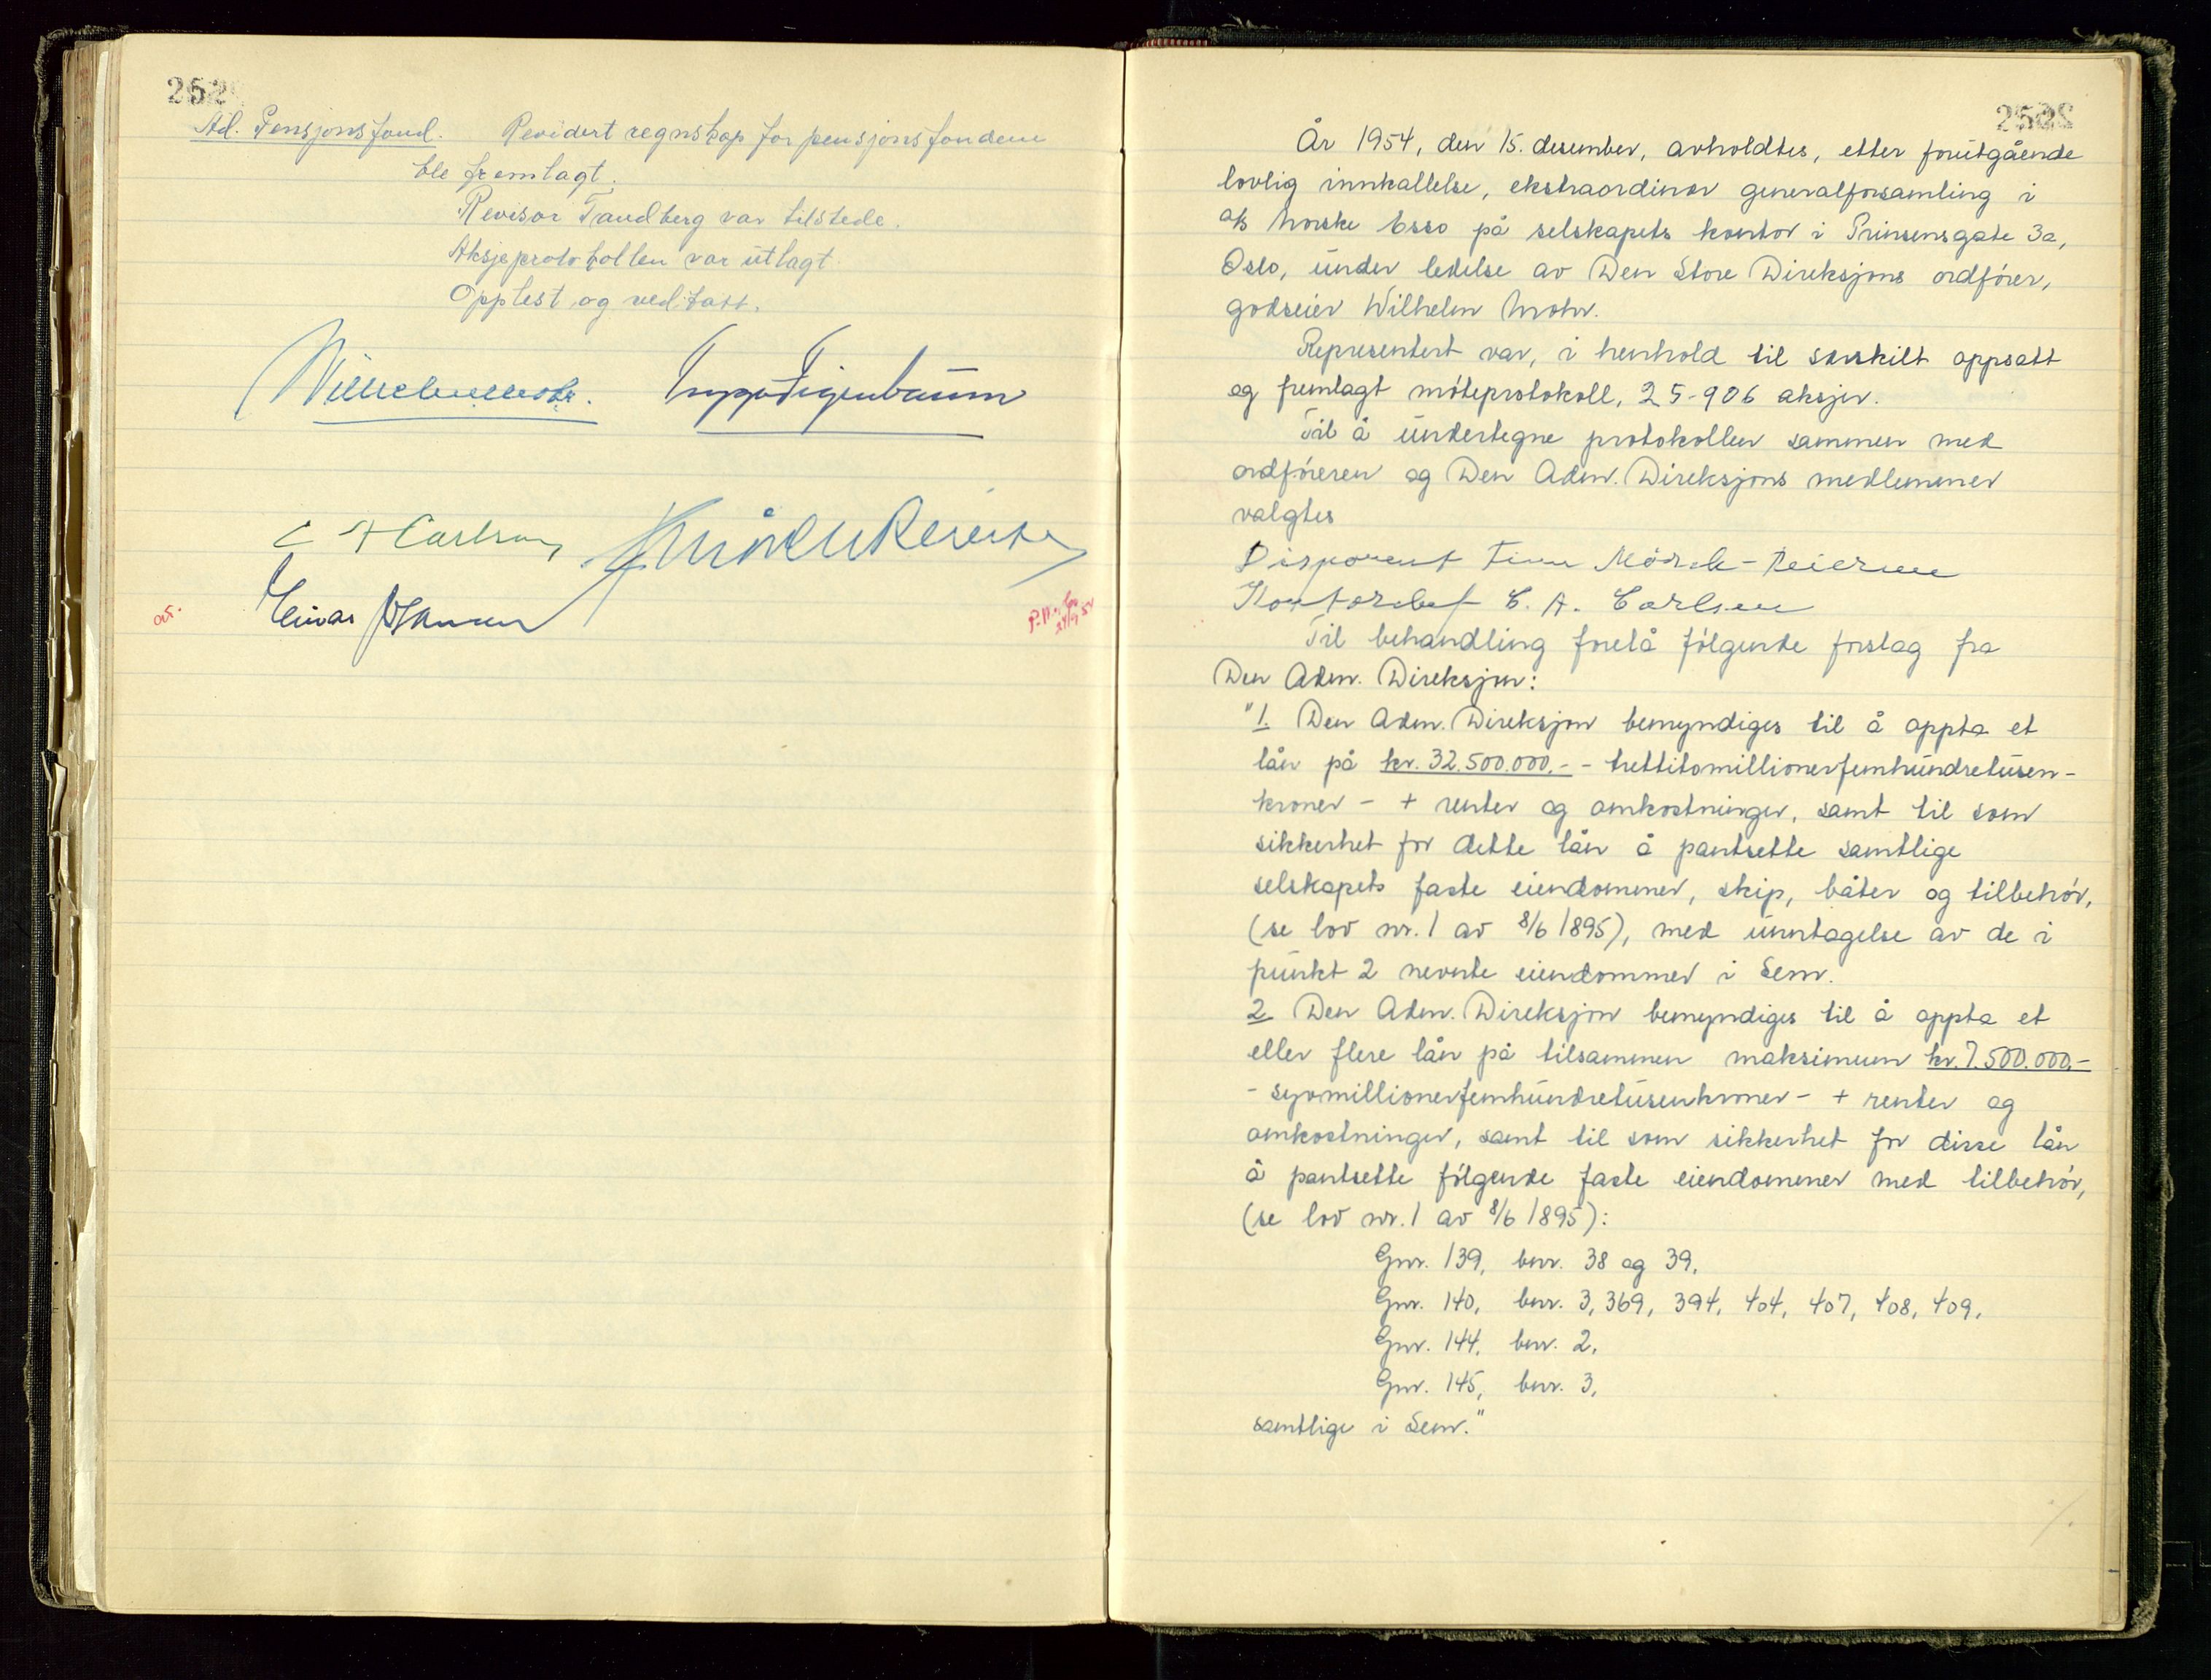 252
Ad. Pensjonsfond. Revidert regnskap for pensjonsfondene
ble fremlagt.
Revisor Tandberg var tilstede.
Aksjeprotokollen var utlagt
Opplest og vedtatt.
C A Carlsen
Einar
252
År 1954, den 15. desember, avholdtes, etter forutgående
lovlig innkallelse, ekstraordinær generalforsamling i
A/S Norske Esso på selskapets kontor i Prinsensgate 3a,
Oslo, under ledelse av Den Store Direksjons ordfører,
godseier Wilhelm Mohr.
Representert var, i henhold til særskilt oppsatt
og fremlagt møteprotokoll, 25-906 aksjer.
Til å undertegne protokollen sammen med
ordføreren og Den Adm. Direksjons medlemmer
valgtes
Disponent Finn Mörch-Reiersen
Kontorchef C. A. Carlsen
Til behandling forelå følgende forslag fra
Den Adm. Direksjon:
"1. Den Adm. Direksjon bemyndiges til å oppta et
lån på kr. 32.500.000.- - trettitomillionerfemhundretusen-
kroner - + renter og omkostninger, samt til som
sikkerhet for dette lån å pantsette samtlige
selskapets faste eiendommer, skip, båter og tilbehør,
(se lov nr. 1 av 8/6 1895), med unntagelse av de i
punkt 2 nevnte eiendommer i Sem.
2. Den Adm. Direksjon bemyndiges til å oppta et
eller flere lån på tilsammen maksimum kr. 7.500.000,-
- syvmillionerfemhundretusenkroner - + renter og
omkostninger, samt til som sikkerhet for disse lån
å pantsette følgende faste eiendommer med tilbehør,
(se lov nr. 1 av 8/6 1895):
Gnr. 139, bnr. 38 og 39,
Gnr. 140, bnr. 3, 369, 394, 404, 407, 408, 409,
Gnr. 144, bnr. 2,
Gnr. 145, bnr. 3,
samtlige i Sem."